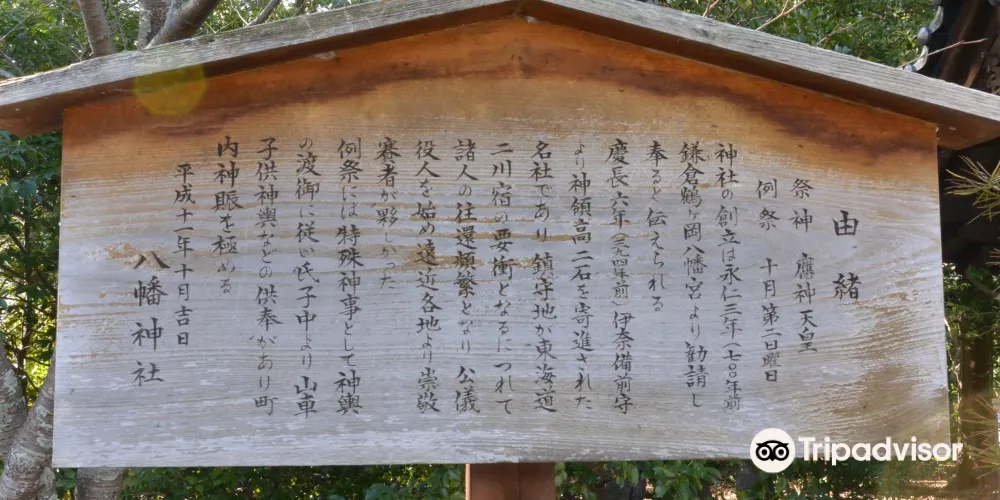 由緒
祭神 應神天皇
例祭 十月第二日曜日
神社の創立は永仁三年(七〇〇年前
鎌倉鶴ヶ岡八幡宮より勧請し
奉ると伝えられる
慶長六年(三九四年前)伊奈備前守
より神領高二石を寄進された
名社であり 鎮守地が東海道
二川宿の要衝となるにつれて
諸人の往還頻繁となり 公儀
役人を始め遠近各地より崇敬
賽者が夥しかった
例祭には特殊神事として神輿
の渡御に従い氏子中より 山車
子供神輿などの供奉があり町
内神賑を極める
平成十一年十月吉日
八幡神社
Tripadvisor